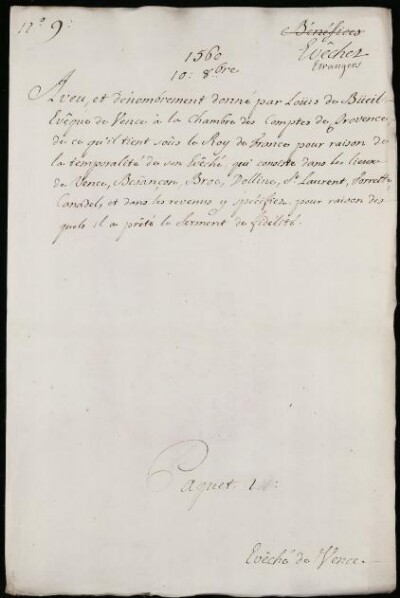 n.º 9:
Bénéfices
Evêchez
Etrangers
1560
10: 8bre
Aveu, et dénombrement donné par Louis de Büeil
Evêque de Vence à la Chambre des Comptes de Provence,
de ce qu'il tient sous le Roy de France pour raison de
la temporalité de son Evêché, qui consiste dans les lieux
de Vence, Besançon, Broc, Dolline, St Laurent, Torrett
Canadel, et dans les revenus y specifiez, pour raison des
quels il a prêté le Serment de fidélité.
Paquet 1
Evêché de Vence